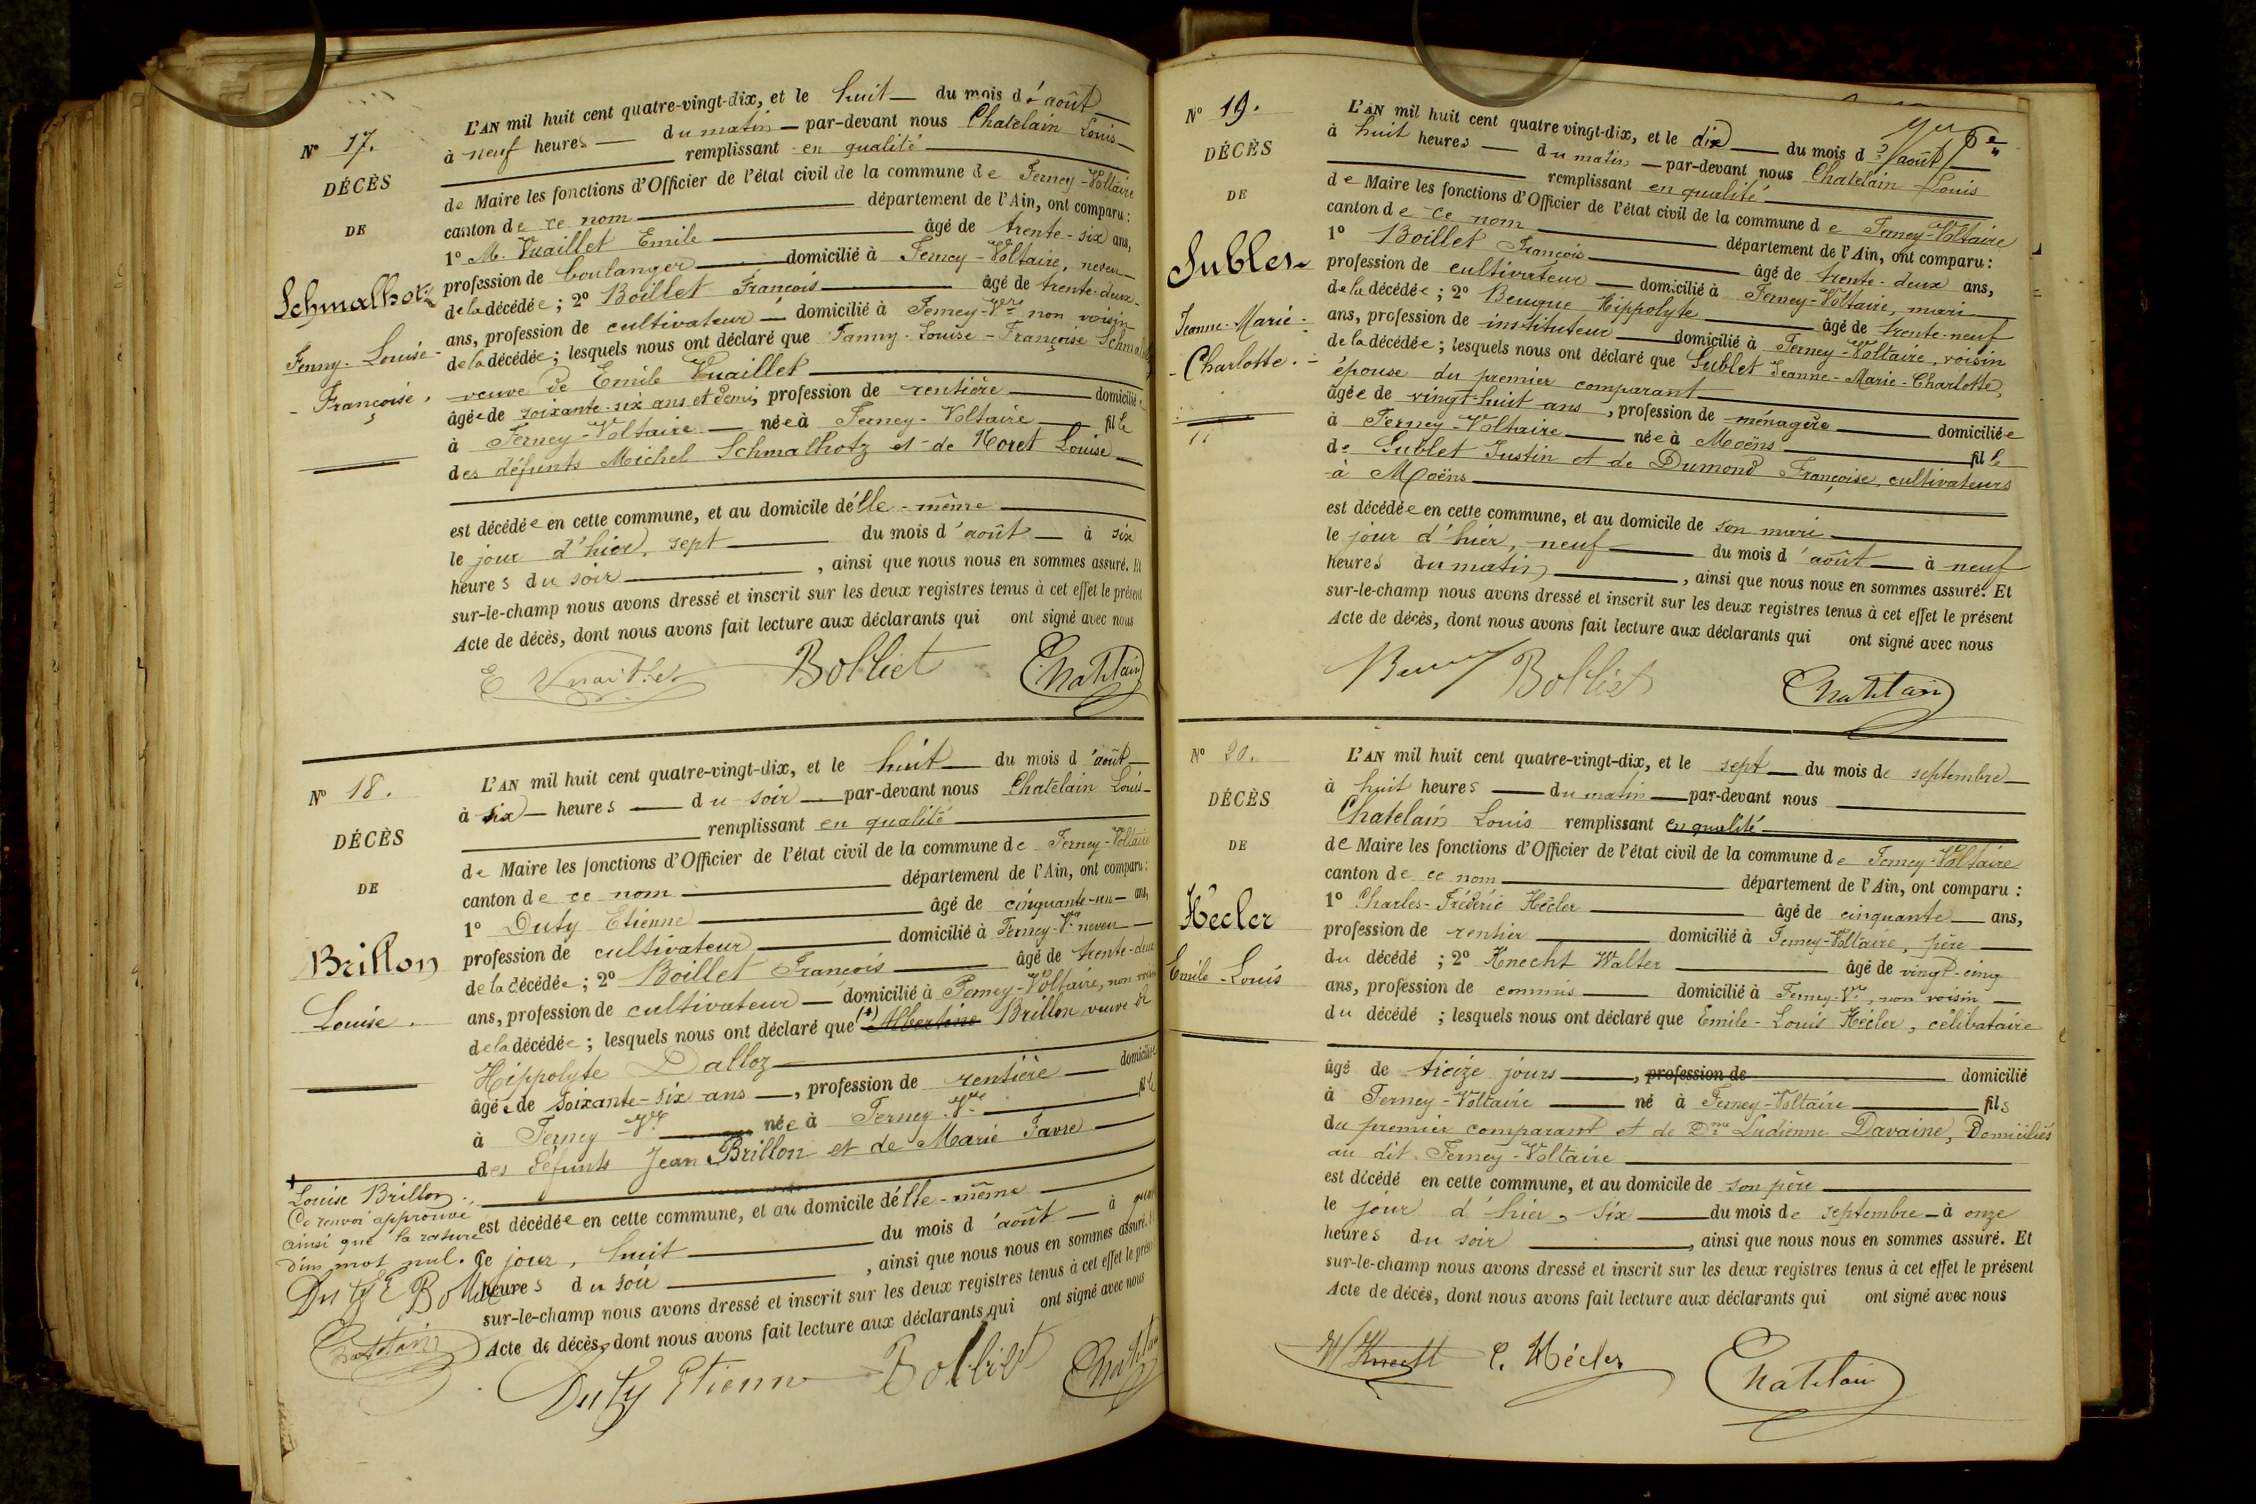 N° 17.
DÉCÈS
DE
Schmalhotz
Fanny-Louise-
-Françoise.
L'AN mil huit cent quatre-vingt-dix, et le huit du mois d'août
à neuf heures du matin par-devant nous Chatelain Louis
remplissant en qualité
de Maire les fonctions d'Officier de l'état civil de la commune de Ferney-Voltaire
canton de ce nom département de l'Ain, ont comparu :
1° M. Vuaillet Emile âgé de trente-six ans,
profession de boulanger domicilié à Ferney-Voltaire, neveu
de la décédée ; 2° Boillet François âgé de trente-deux
ans, profession de cultivateur domicilié à Ferney-Vre non voisin
de la décédée ; lesquels nous ont déclaré que Fanny-Louise-Françoise Schmalhotz
veuve de Emile Vuaillet
âgée de soixante-six ans et demi, profession de rentière domiciliée
à Ferney-Voltaire née à Ferney-Voltaire fille
des défunts Michel Schmalhotz et de Noret Louise
est décédée en cette commune, et au domicile d'elle-même
le jour d'hier, sept du mois d'août à six
heures du soir, ainsi que nous nous en sommes assuré. Et
sur-le-champ nous avons dressé et inscrit sur les deux registres tenus à cet effet le présent
Acte de décès, dont nous avons fait lecture aux déclarants qui ont signé avec nous
E Vuaillet Bolliet Chatelain
N° 18.
DÉCÈS
DE
Brillon
Louise.
L'AN mil huit cent quatre-vingt-dix, et le huit du mois d'août
à six heures du soir par-devant nous Chatelain Louis
remplissant en qualité
de Maire les fonctions d'Officier de l'état civil de la commune de Ferney-Voltaire
canton de ce nom département de l'Ain, ont comparu :
1° Duty Etienne âgé de cinquante-un ans,
profession de cultivateur domicilié à Ferney-Vre neveu
de la décédée ; 2° Boillet François âgé de trente-deux
ans, profession de cultivateur domicilié à Ferney-Voltaire, non voisin
de la décédée ; lesquels nous ont déclaré que (+) Albertine Brillon veuve de
Hippolyte Dalloz
âgée de soixante-six ans, profession de rentière domiciliée
à Ferney-Vre née à Ferney-Vre fille
des défunts Jean Brillon et de Marie Favre
est décédée en cette commune, et au domicile d'elle-même
Ce jour, huit du mois d'août à quatre
heures du soir, ainsi que nous nous en sommes assuré. Et
sur-le-champ nous avons dressé et inscrit sur les deux registres tenus à cet effet le présent
Acte de décès, dont nous avons fait lecture aux déclarants qui ont signé avec nous
+ Louise Brillon.
Ce renvoi approuvé
ainsi que la rature
d'un mot nul.
Duty E Bolliet
Chatelain
Duty Etienne Bolliet Chatelain
N° 19.
DÉCÈS
DE
Sublet
Jeanne-Marie-
-Charlotte.
L'AN mil huit cent quatre vingt-dix, et le dix du mois d'août
à huit heures du matin par-devant nous Chatelain Louis
remplissant en qualité
de Maire les fonctions d'Officier de l'état civil de la commune de Ferney-Voltaire
canton de ce nom département de l'Ain, ont comparu :
1° Boillet François âgé de trente-deux ans,
profession de cultivateur domicilié à Ferney-Voltaire, mari
de la décédée ; 2° Beugue Hippolyte âgé de trente-neuf
ans, profession de instituteur domicilié à Ferney-Voltaire, voisin
de la décédée ; lesquels nous ont déclaré que Sublet Jeanne-Marie-Charlotte,
épouse du premier comparant
âgée de vingt-huit ans, profession de ménagère domiciliée
à Ferney-Voltaire née à Moëns fille
de Sublet Justin et de Dumond Françoise, cultivateurs
à Moëns
est décédée en cette commune, et au domicile de son mari
le jour d'hier, neuf du mois d'août à neuf
heures du matin, ainsi que nous nous en sommes assuré. Et
sur-le-champ nous avons dressé et inscrit sur les deux registres tenus à cet effet le présent
Acte de décès, dont nous avons fait lecture aux déclarants qui ont signé avec nous
Bolliet Chatelain
N° 20.
DÉCÈS
DE
Hécler
Emile-Louis
L'AN mil huit cent quatre-vingt-dix, et le sept du mois de septembre
à huit heures du matin par-devant nous
Chatelain Louis remplissant en qualité
de Maire les fonctions d'Officier de l'état civil de la commune de Ferney-Voltaire
canton de ce nom département de l'Ain, ont comparu :
1° Charles-Frédéric Hécler âgé de cinquante ans,
profession de rentier domicilié à Ferney-Voltaire, père
du décédé ; 2° Knecht Walter âgé de vingt-cinq
ans, profession de commis domicilié à Ferney-Vre, non voisin
du décédé ; lesquels nous ont déclaré que Emile-Louis Hécler, célibataire
âgé de treize jours, profession de domicilié
à Ferney-Voltaire né à Ferney-Voltaire fils
du premier comparant et de Dme Ludienne Davaine, Domiciliés
au dit Ferney-Voltaire
est décédé en cette commune, et au domicile de son père
le jour d'hier, six du mois de septembre à onze
heures du soir, ainsi que nous nous en sommes assuré. Et
sur-le-champ nous avons dressé et inscrit sur les deux registres tenus à cet effet le présent
Acte de décès, dont nous avons fait lecture aux déclarants qui ont signé avec nous
W Knecht C. Hécler Chatelain